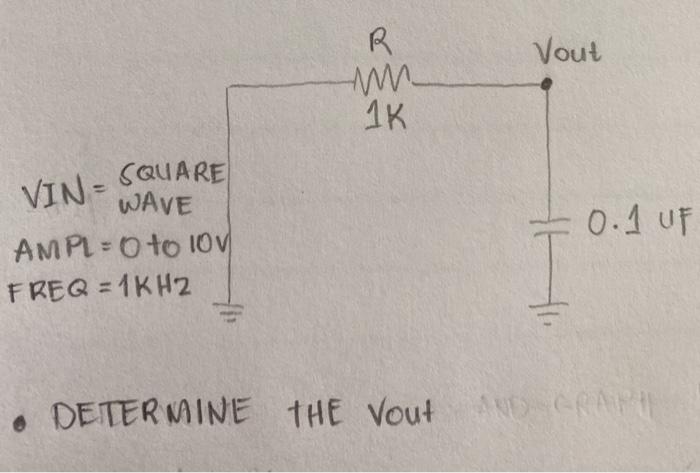 R
Vout
1K
VIN = SQUARE
WAVE
AMPL = 0 to 10V
FREQ = 1KHZ
0.1 UF
• DETERMINE THE Vout AND GRAPH